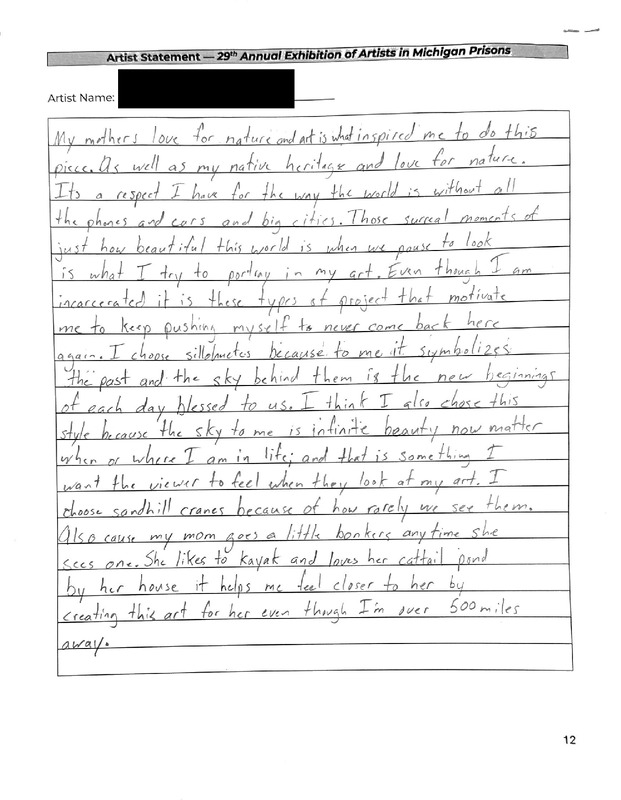 Artist Statement — 29th Annual Exhibition of Artists in Michigan Prisons
Artist Name:
My mothers love for nature and art is what inspired me to do this
piece. As well as my native heritage and love for nature.
Its a respect I have for the way the world is without all
the phones and cars and big cities. Those surreal moments of
just how beautiful this world is when we pause to look
is what I try to portray in my art. Even though I am
incarcerated it is these types of project that motivate
me to keep pushing myself to never come back here
again. I choose sillohuetes because to me it symbolizes
the past and the sky behind them is the new beginnings
of each day blessed to us. I think I also chose this
style because the sky to me is infinite beauty now matter
when or where I am in life; and that is something I
want the viewer to feel when they look at my art. I
choose sandhill cranes because of how rarely we see them.
Also cause my mom goes a little bonkers anytime she
sees one. She likes to kayak and loves her cattail pond
by her house it helps me feel closer to her by
creating this art for her even though I'm over 500 miles
away.
12